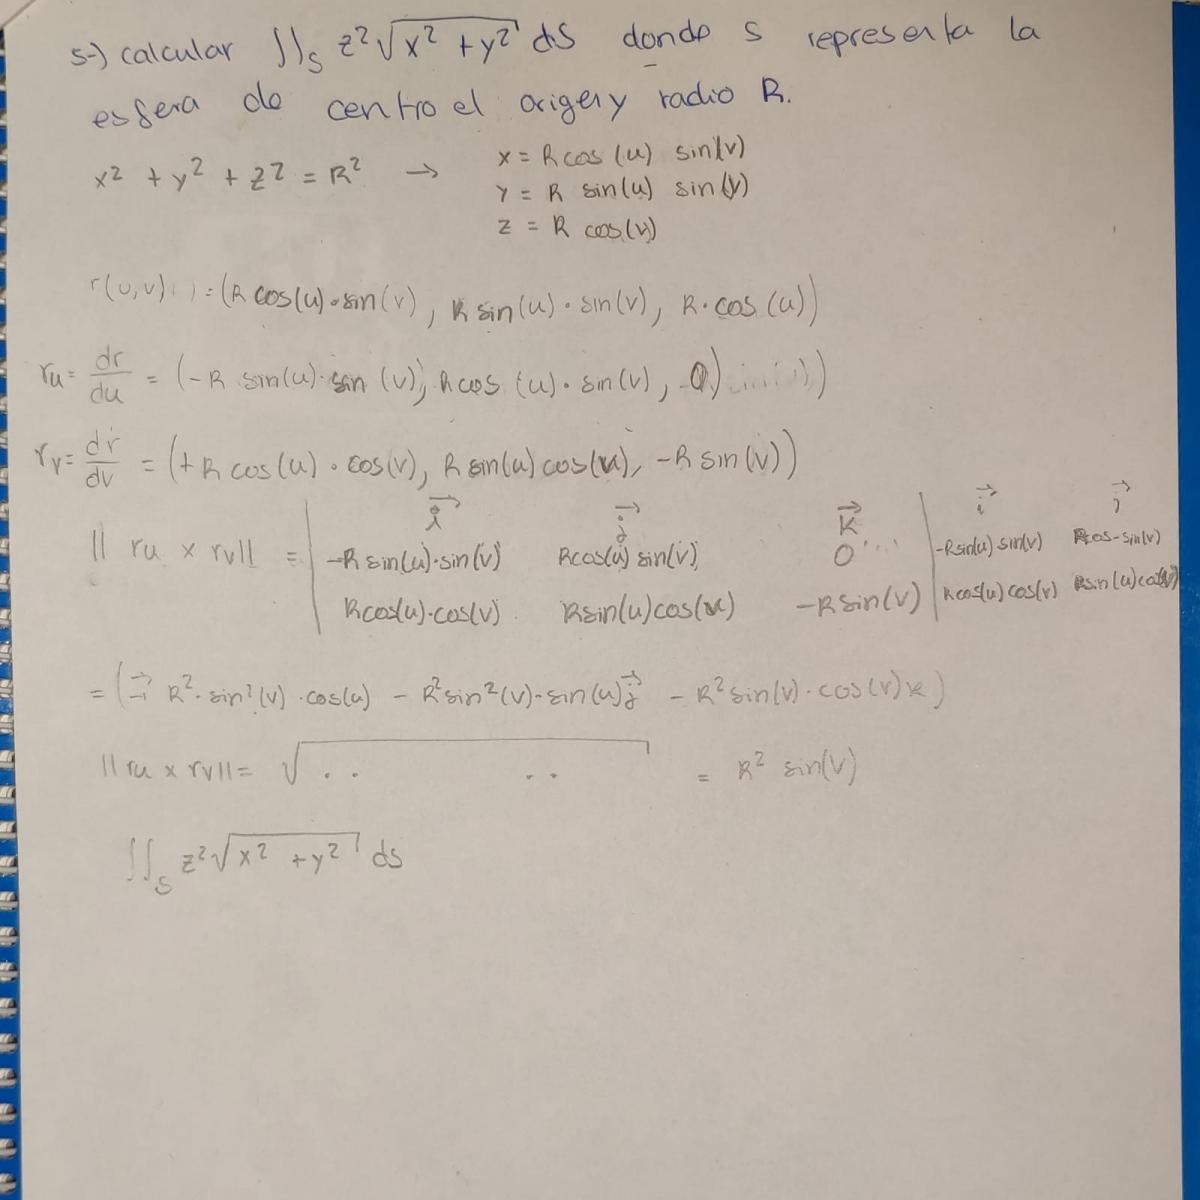 5-) calcular ∬_S z² √(x² + y²) dS donde s representa la
esfera de centro el origen y radio R.
x² + y² + z² = R² → x = R cos (u) sin(v)
y = R sin(u) sin(v)
z = R cos(v)
r(u,v) = (R cos(u)·sin(v), R sin(u)·sin(v), R·cos(u))
ru = dr/du = (-R sin(u)·sin(v), R cos(u)·sin(v), 0)
rv = dr/dv = (+R cos(u)·cos(v), R sin(u) cos(u), -R sin(v))
|| ru x rv || = | i j k | i j
-R sin(u)·sin(v) R cos(u) sin(v) 0 | -R sin(u) sin(v) R cos - sin(v)
R cos(u)·cos(v) R sin(u) cos(u) -R sin(v) | R cos(u) cos(v) R sin(u) cos(v)
= (-i R²·sin²(v)·cos(u) - R² sin²(v)·sin(u) j - R² sin(v)·cos(v) k)
|| ru x rv || = √.. .. = R² sin(v)
∬_S z² √(x² + y²) ds